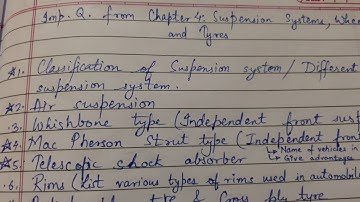 Imp. Q. from Chapter 4: Suspension Systems, Whee
and Tyres
*1. Classification of Suspension system / Different
suspension system.
*2. Air suspension
.3. Whishbone type (Independent front susp
*4. Mac Pherson Strut type (Independent front
↳ Name of vehicles in
↳ Give advantages
*5. Telescopic shock absorber
.6. Rims (List various types of rims used in automobile
tyre & Cross ply tyre